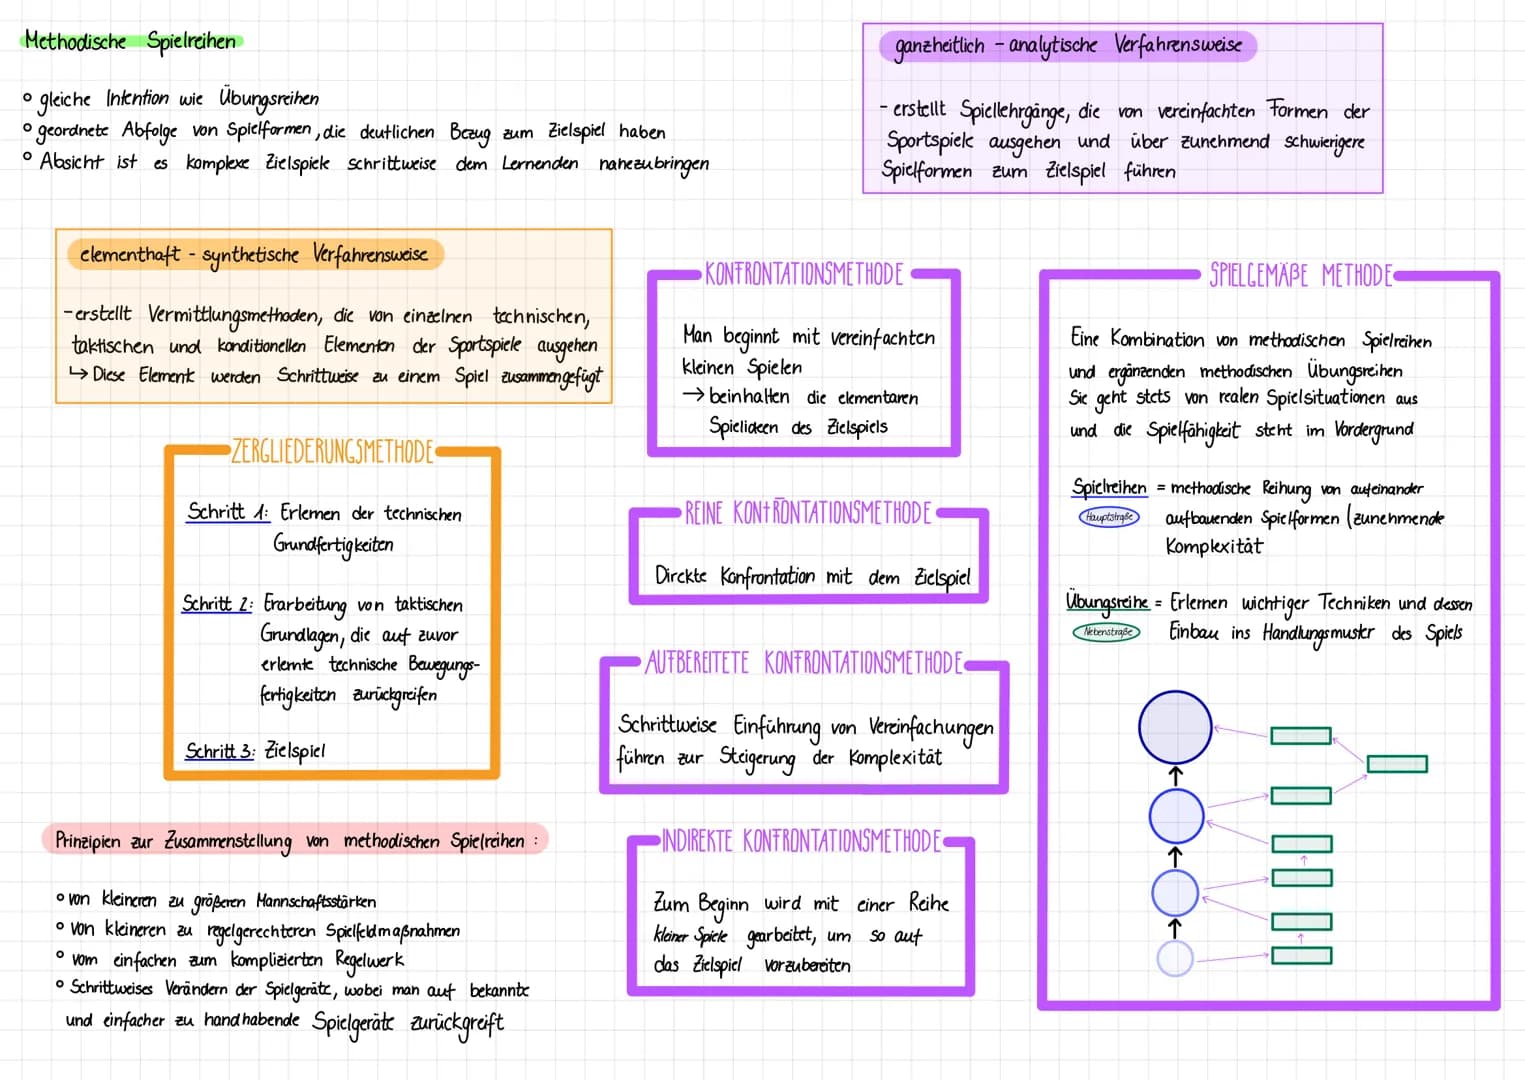 Methodische Spielreihen
° gleiche Intention wie Übungsreihen
° geordnete Abfolge von Spielformen, die deutlichen Bezug zum Zielspiel haben
° Absicht ist es komplexe Zielspiele schrittweise dem Lernenden nahezubringen
ganzheitlich - analytische Verfahrensweise
- erstellt Spiellehrgänge, die von vereinfachten Formen der
Sportspiele ausgehen und über zunehmend schwierigere
Spielformen zum Zielspiel führen
elementhaft - synthetische Verfahrensweise
- erstellt Vermittlungsmethoden, die von einzelnen technischen,
taktischen und konditionellen Elementen der Sportspiele ausgehen
↳ Diese Elemente werden Schrittweise zu einem Spiel zusammengefügt
ZERGLIEDERUNGSMETHODE
Schritt 1: Erlernen der technischen
Grundfertigkeiten
Schritt 2: Erarbeitung von taktischen
Grundlagen, die auf zuvor
erlernte technische Bewegungs-
fertigkeiten zurückgreifen
Schritt 3: Zielspiel
Prinzipien zur Zusammenstellung von methodischen Spielreihen :
° von kleineren zu größeren Mannschaftsstärken
° von kleineren zu regelgerechteren Spielfeldmaßnahmen
° vom einfachen zum komplizierten Regelwerk
° Schrittweises Verändern der Spielgeräte, wobei man auf bekannte
und einfacher zu handhabende Spielgeräte zurückgreift
KONFRONTATIONSMETHODE
Man beginnt mit vereinfachten
kleinen Spielen
→ beinhalten die elementaren
Spielideen des Zielspiels
REINE KONFRONTATIONSMETHODE
Direkte Konfrontation mit dem Zielspiel
AUFBEREITETE KONFRONTATIONSMETHODE
Schrittweise Einführung von Vereinfachungen
führen zur Steigerung der Komplexität
INDIREKTE KONFRONTATIONSMETHODE
Zum Beginn wird mit einer Reihe
kleiner Spiele gearbeitet, um so auf
das Zielspiel vorzubereiten
SPIELGEMÄßE METHODE
Eine Kombination von methodischen Spielreihen
und ergänzenden methodischen Übungsreihen
Sie geht stets von realen Spielsituationen aus
und die Spielfähigkeit steht im Vordergrund
Spielreihen = methodische Reihung von aufeinander
Hauptstraße aufbauenden Spielformen (zunehmende
Komplexität
Übungsreihe = Erlernen wichtiger Techniken und dessen
Nebenstraße Einbau ins Handlungsmuster des Spiels